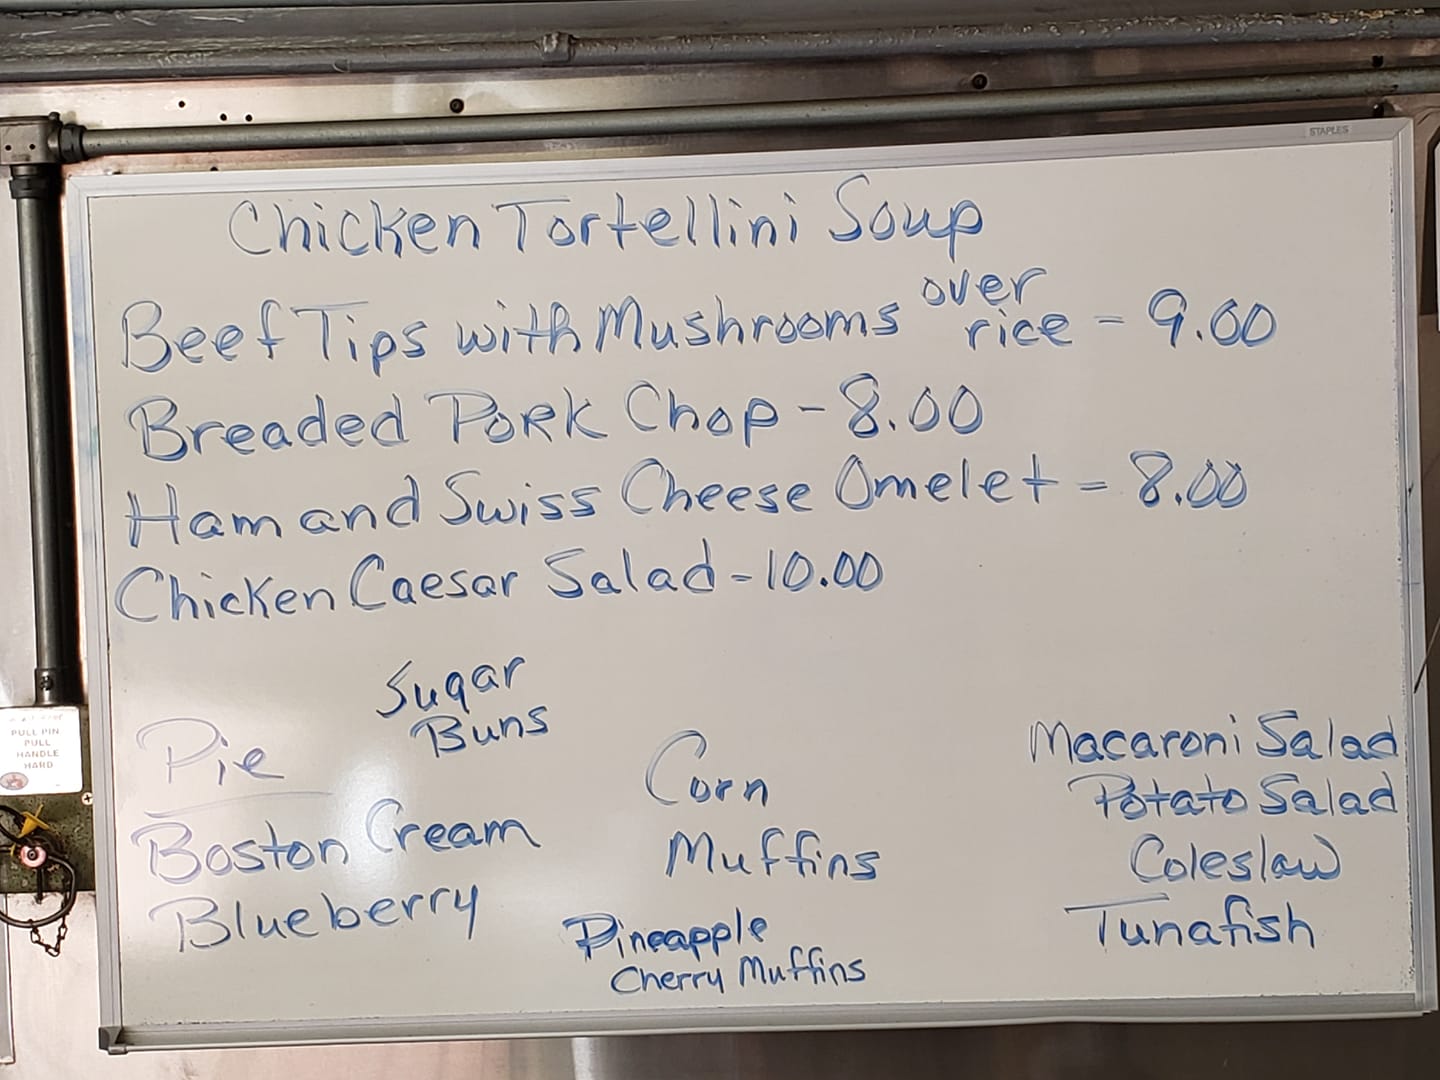 STAPLES
Chicken Tortellini Soup
Beef Tips with Mushrooms over rice - 9.00
Breaded Pork Chop - 8.00
Ham and Swiss Cheese Omelet - 8.00
Chicken Caesar Salad - 10.00
Sugar
Buns
Pie
Boston Cream
Blueberry
Corn
Muffins
Pineapple
Cherry Muffins
Macaroni Salad
Potato Salad
Coleslaw
Tunafish
PULL PIN
PULL
HANDLE
HARD